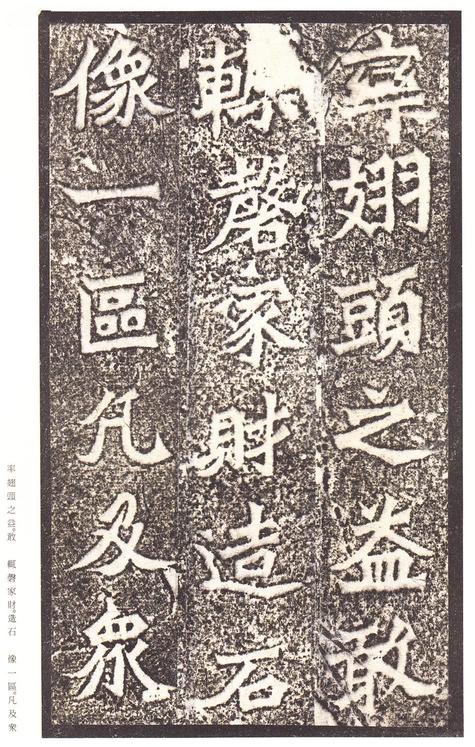 率翅頭之益敢
輒磬家財造石
像一區凡及衆
率翅頭之益。敢　輒磬家財。造石　像一區。凡及衆